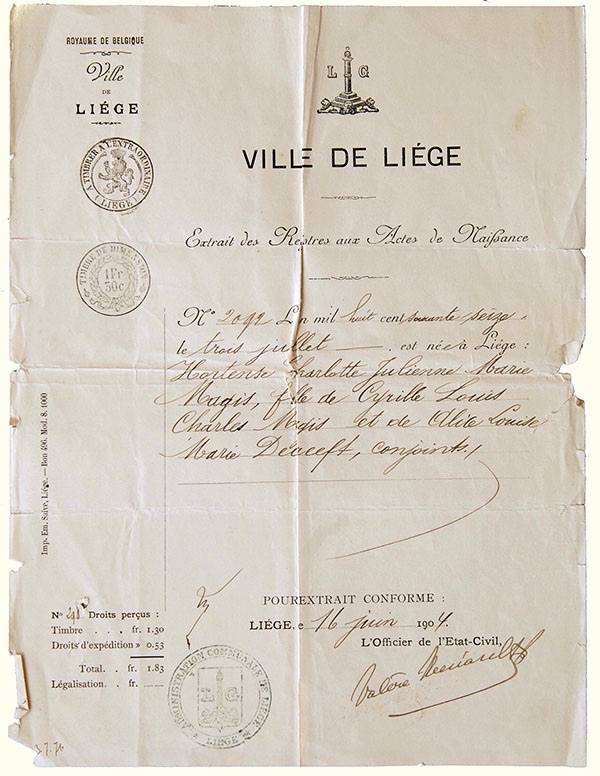 ROYAUME DE BELGIQUE
Ville
DE
LIÉGE
A TIMBRER A L'EXTRAORDINAIRE
(LIÉGE)
TIMBRE DE DIMENSION
1 Fr
30c
L G
VILLE DE LIÉGE
Extrait des Registres aux Actes de Naissance
N° 2092 L'n mil huit cent soixante seize,
le trois juillet, est née à Liége :
Hortense Charlotte Julienne Marie
Magis, fille de Cyrille Louis
Charles Magis et de Alite Louise
Marie conjoints,
Imp. Em. Saive, Liége. — Bon 496. Mod. 8. 1000
POUR EXTRAIT CONFORME :
LIÉGE, le 16 juin 1904.
L'Officier de l'Etat-Civil,
Valère
N° Droits perçus :
Timbre . . . fr. 1.30
Droits d'expédition » 0.53
Total. . fr. 1.83
Légalisation. . fr.
ADMINISTRATION COMMUNALE DE LIÉGE
L G
LIÉGE
3.7.76